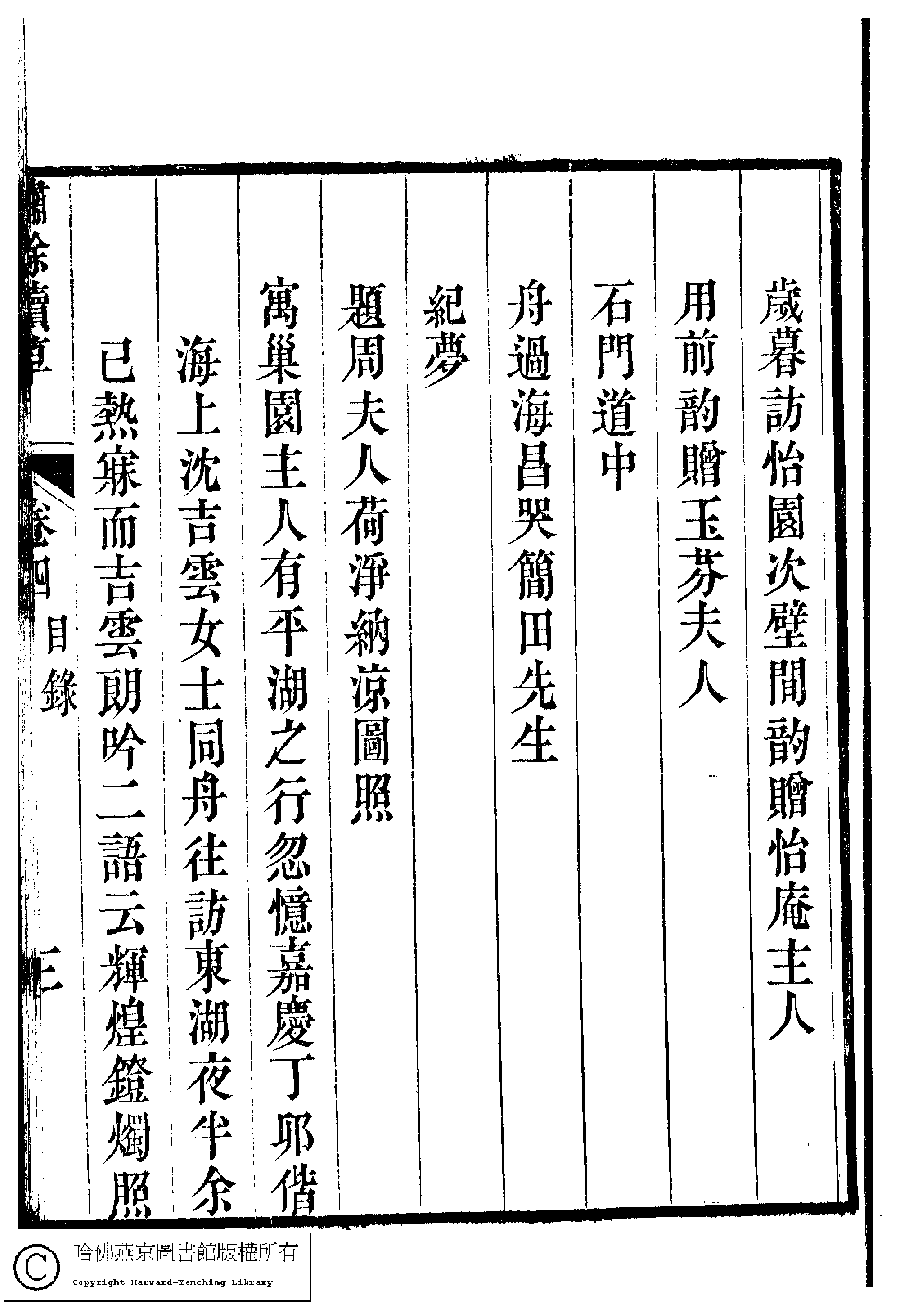 歲暮訪怡園次壁間韵贈怡庵主人
用前韵贈玉芬夫人
石門道中
舟過海昌哭簡田先生
紀夢
題周夫人荷淨納涼圖照
寓巢園主人有平湖之行忽憶嘉慶丁卯偕
海上沈吉雲女士同舟往訪東湖夜半余
已熱寐而吉雲朗吟二語云輝煌鐙燭照
繡餘續草
卷四
目錄
三
哈佛燕京圖書館版權所有
Copyright Harvard-Yenching Library